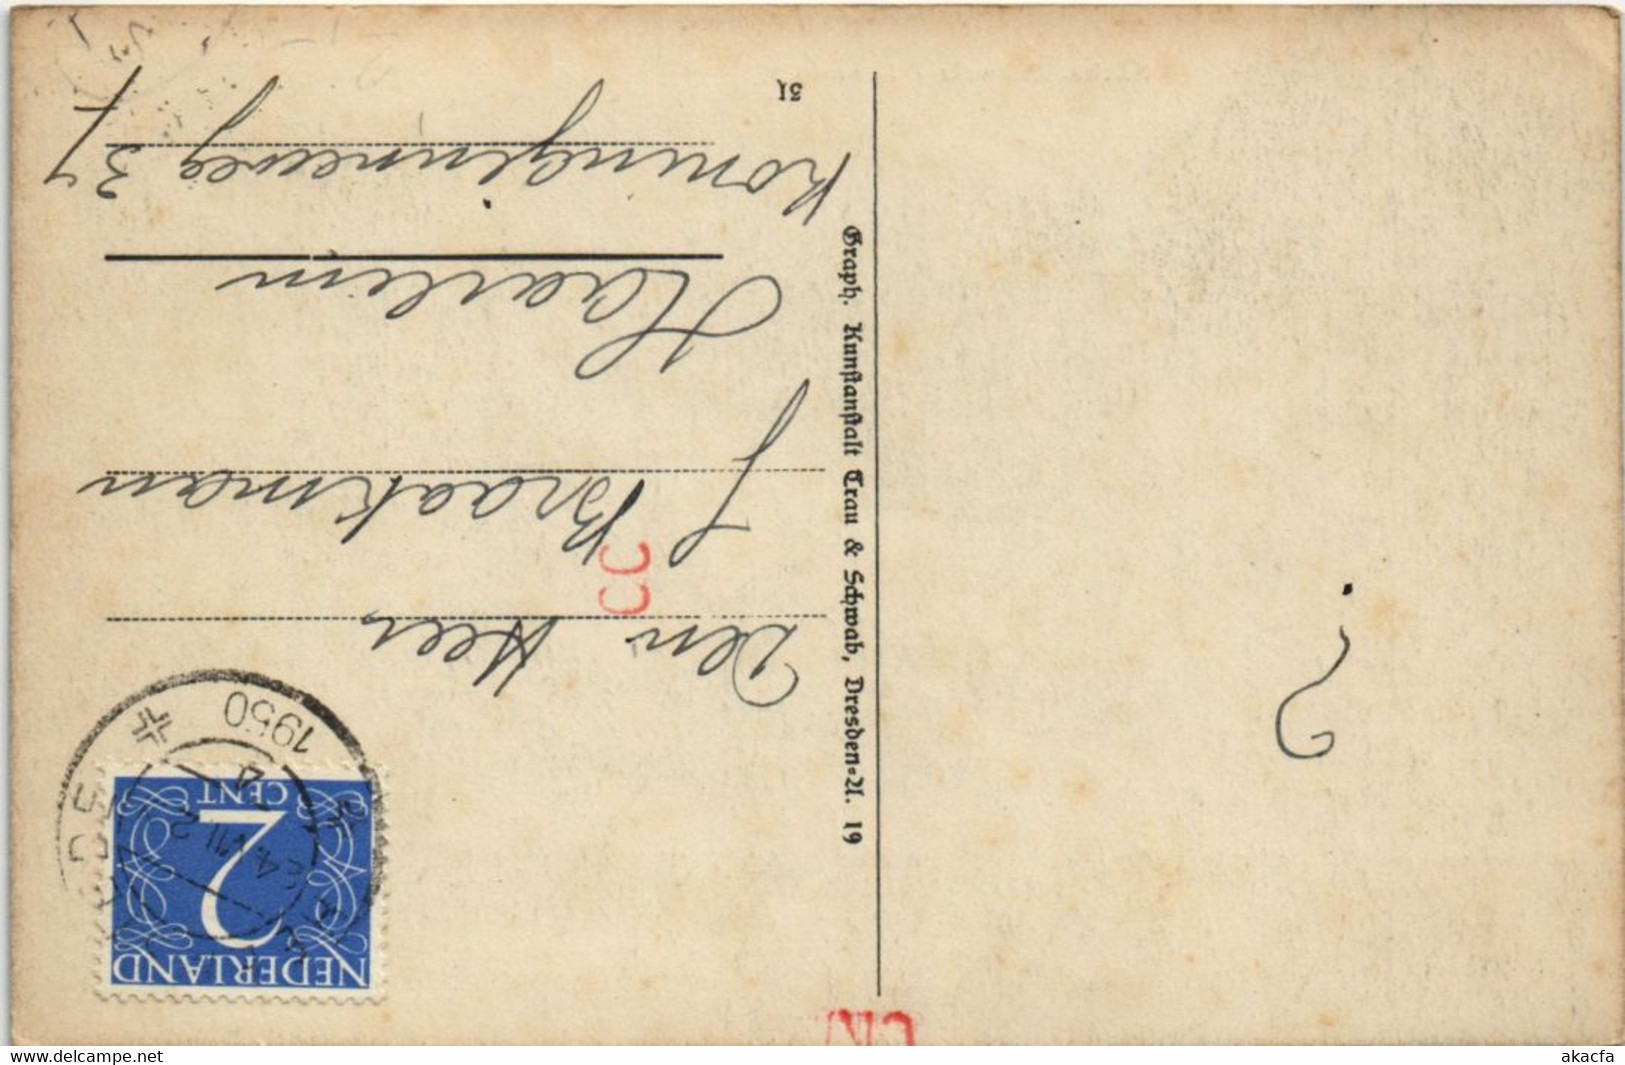 ?
Graph. Kunstanstalt Trau & Schwab, Dresden-A. 19
NEDERLAND
2
CENT
1950
Den Heer
CC
J Braakman
Haarlem
Koninginneweg 37
31
www.delcampe.net
akacfa